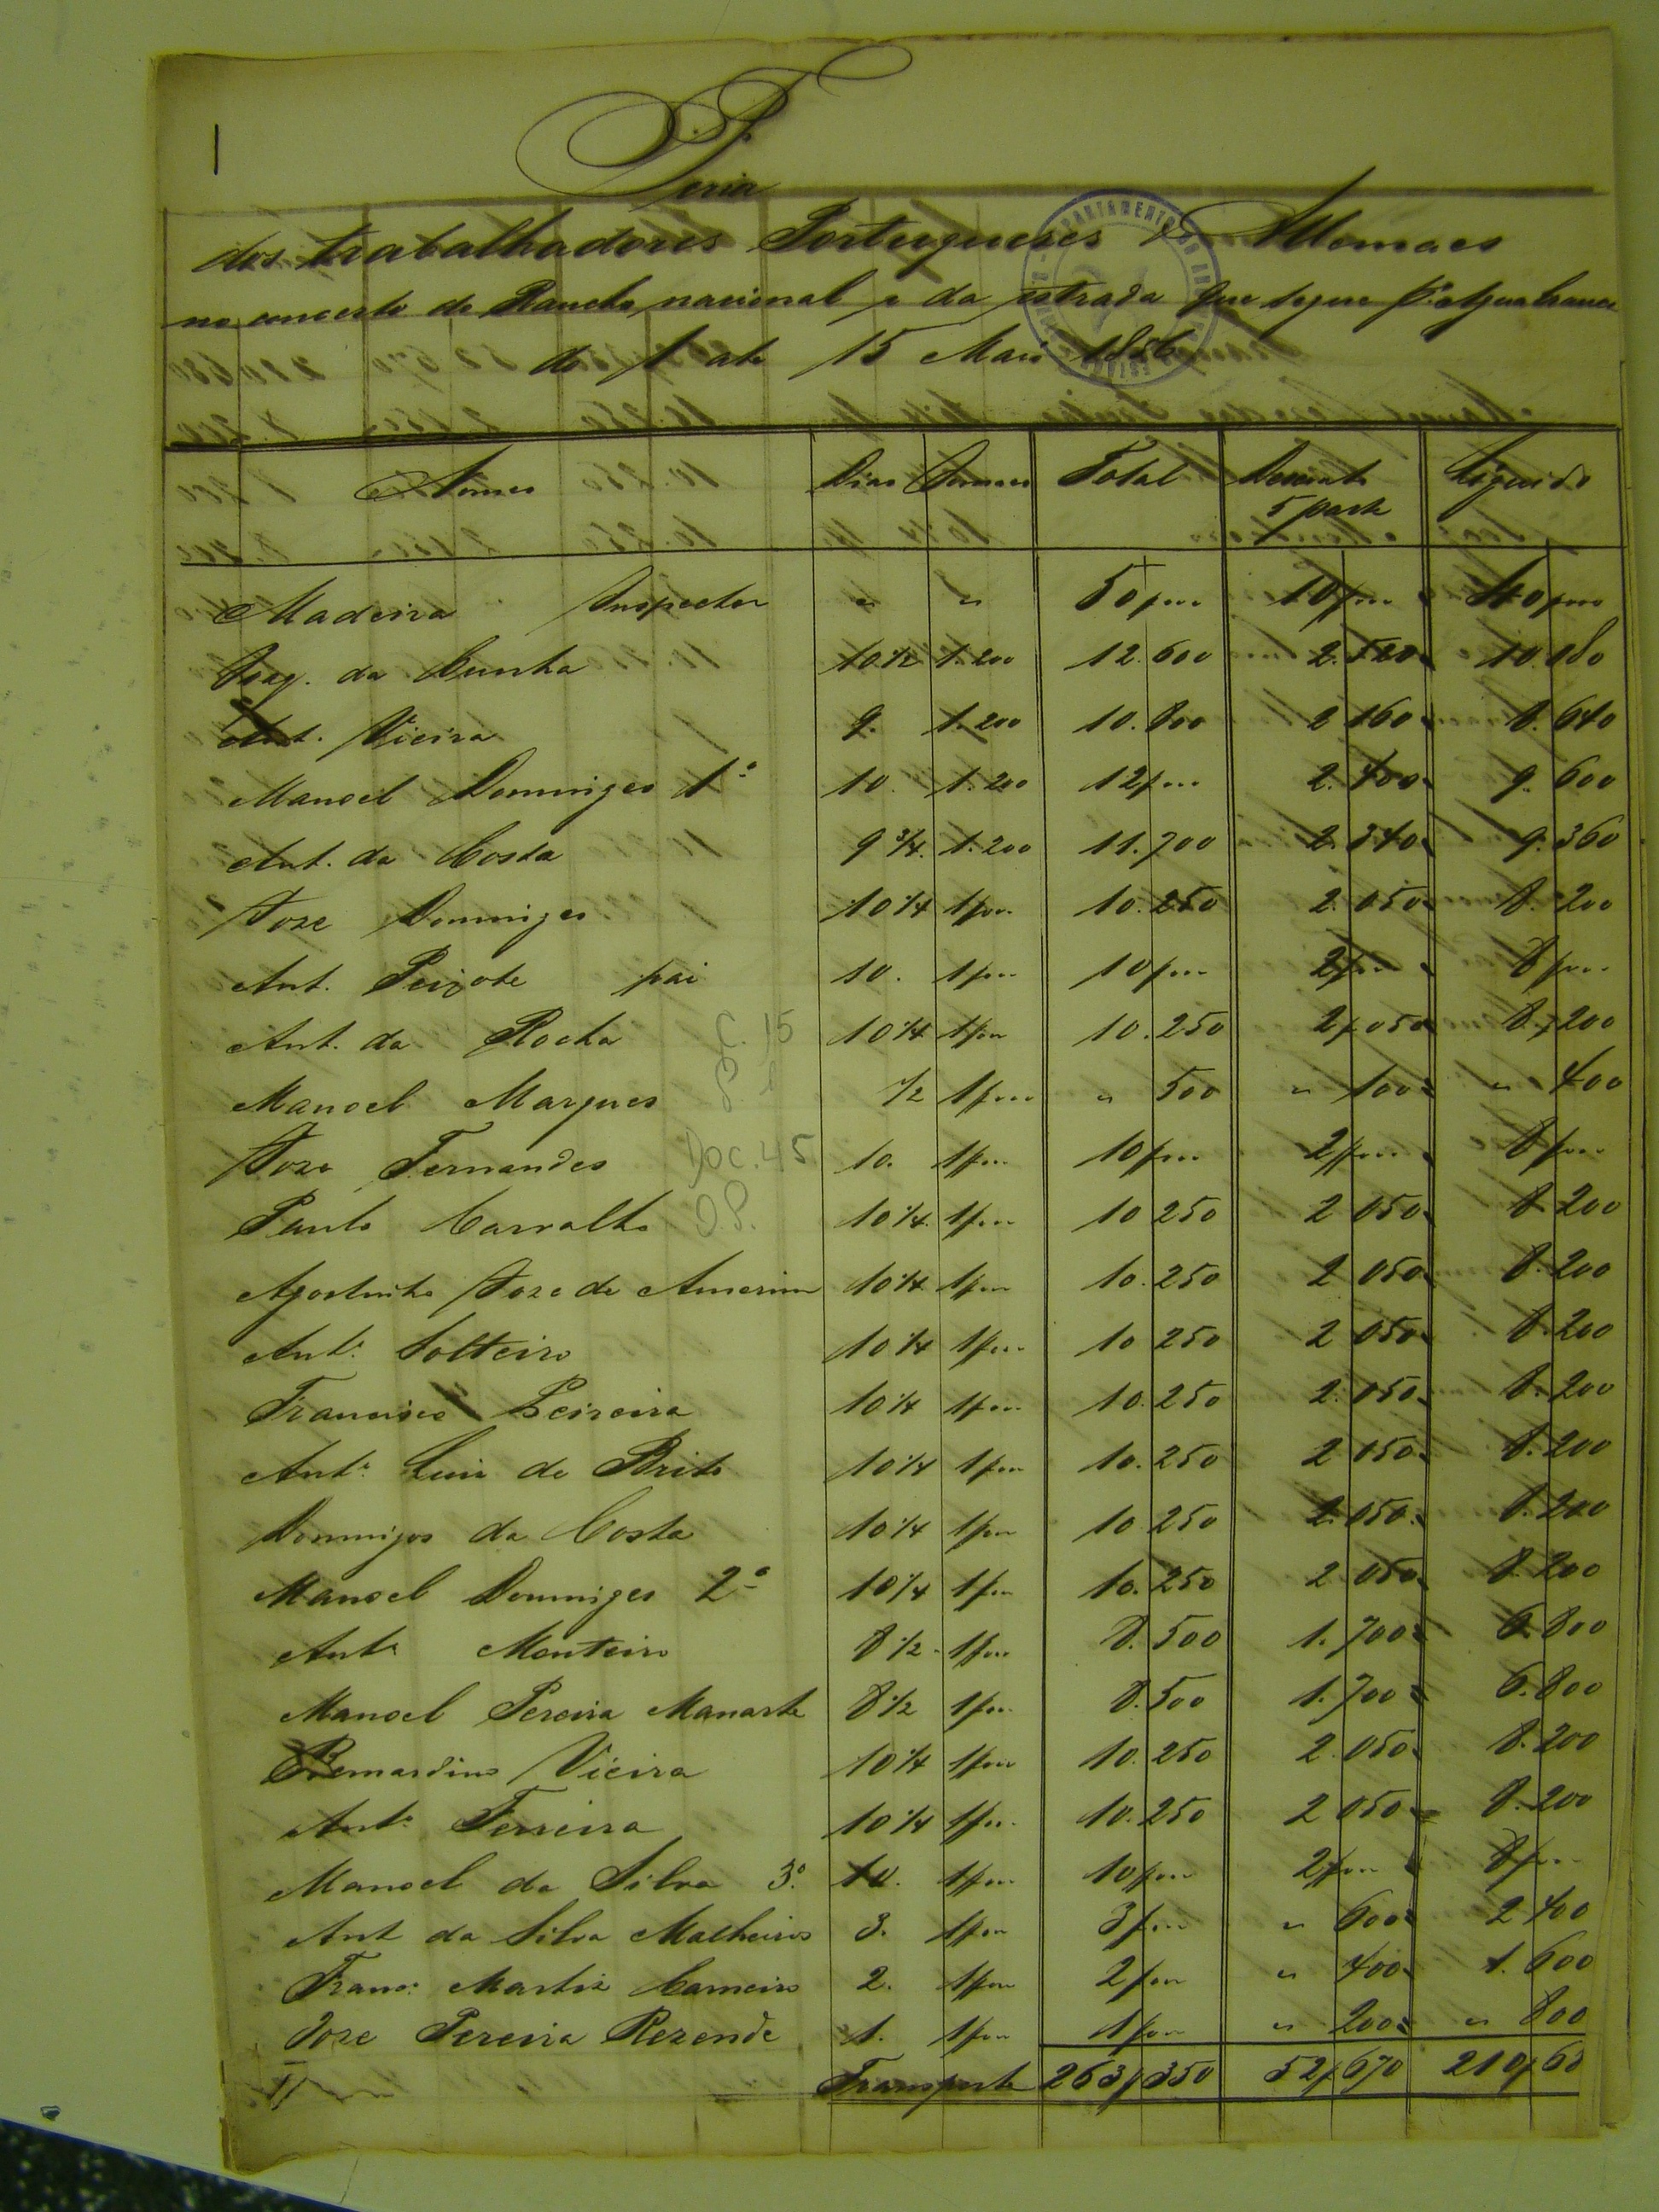 Feria
dos trabalhadores Portugueses & Allemaes
no concerto do Rancho nacional e da estrada que segue
de 1 ate 15 Maio 1856
Nomes Dias Jornaes Total Desconto 5 parte Liquido
Madeira Inspector " " 50$000 10$000 40$000
Joaq. da Cunha 10 1/2 1.200 12.600 2.520 10.080
Ant. Vieira 9. 1.200 10.800 2 160 8.640
Manoel Dominges 1º 10. 1.200 12$000 2.400 9.600
Ant. da Costa 9 3/4. 1.200 11.700 2.340 9.360
Joze Dominges 10 1/4 1$000 10.250 2.050 8.200
Ant. Peixote pai 10. 1$000 10$000 2$000 8$000
Ant. da Rocha 10 1/4 1$000 10.250 2$050 8.$200
C. 15
Manoel Marques 1/2 1$000 " 500 " 100 " 400
Joze Fernandes 10. 1$000 10$000 2$000 8$000
DOC. 45
Paulo Carvalho 10 1/4. 1$000 10 250 2 050 8 200
O.P.
Agostinho Joze de Amorim 10 1/4 1$000 10.250 2 050 8.200
Antº Solteiro 10 1/4 1$000 10 250 2 050 8.200
Francisco Peixeira 10 1/4 1$000 10.250 2.050 8.200
Antº Luis de Brito 10 1/4 1$000 10.250 2 050 8.200
Domingos da Costa 10 1/4 1$000 10 250 2.050 8.200
Manoel Dominges 2º 10 1/4 1$000 10.250 2 050 8.200
Antº Monteiro 8 1/2 1$000 8.500 1.700 6.800
Manoel Pereira Manarte 8 1/2 1$000 8.500 1.700 6.800
Bernardino Vieira 10 1/4 1$000 10.250 2.050 8.200
Antº Ferreira 10 1/4 1$000 10.250 2 050 8.200
Manoel da Silva 3º 10. 1$000 10$000 2$000 8$000
Ant da Silva Malheiros 3. 1$000 3$000 " 600 2 400
Franc. Martiz Carneiro 2. 1$000 2$000 " 400 1.600
Joze Pereira Rezende 1. 1$000 1$000 " 200 " 800
Transporte 263$350 52$670 210$68